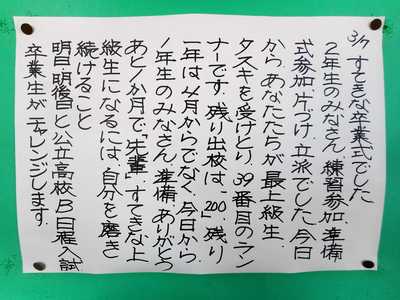 3/7 すてきな卒業式でした
2年生のみなさん、練習、参加、準備
式参加、片づけ、立派でした。今日
から、あなたたちが最上級生、
タスキを受けとり、39番目のラン
ナーです。残り出校は、「200」。残り
一年は4月からでなく、今日から。
1年生のみなさん、準備、ありがとう
あと1か月で「先輩」。すてきな上
級生になるには、自分を磨き
続けること
明日・明後日と公立高校B日程入試
卒業生がチャレンジします。